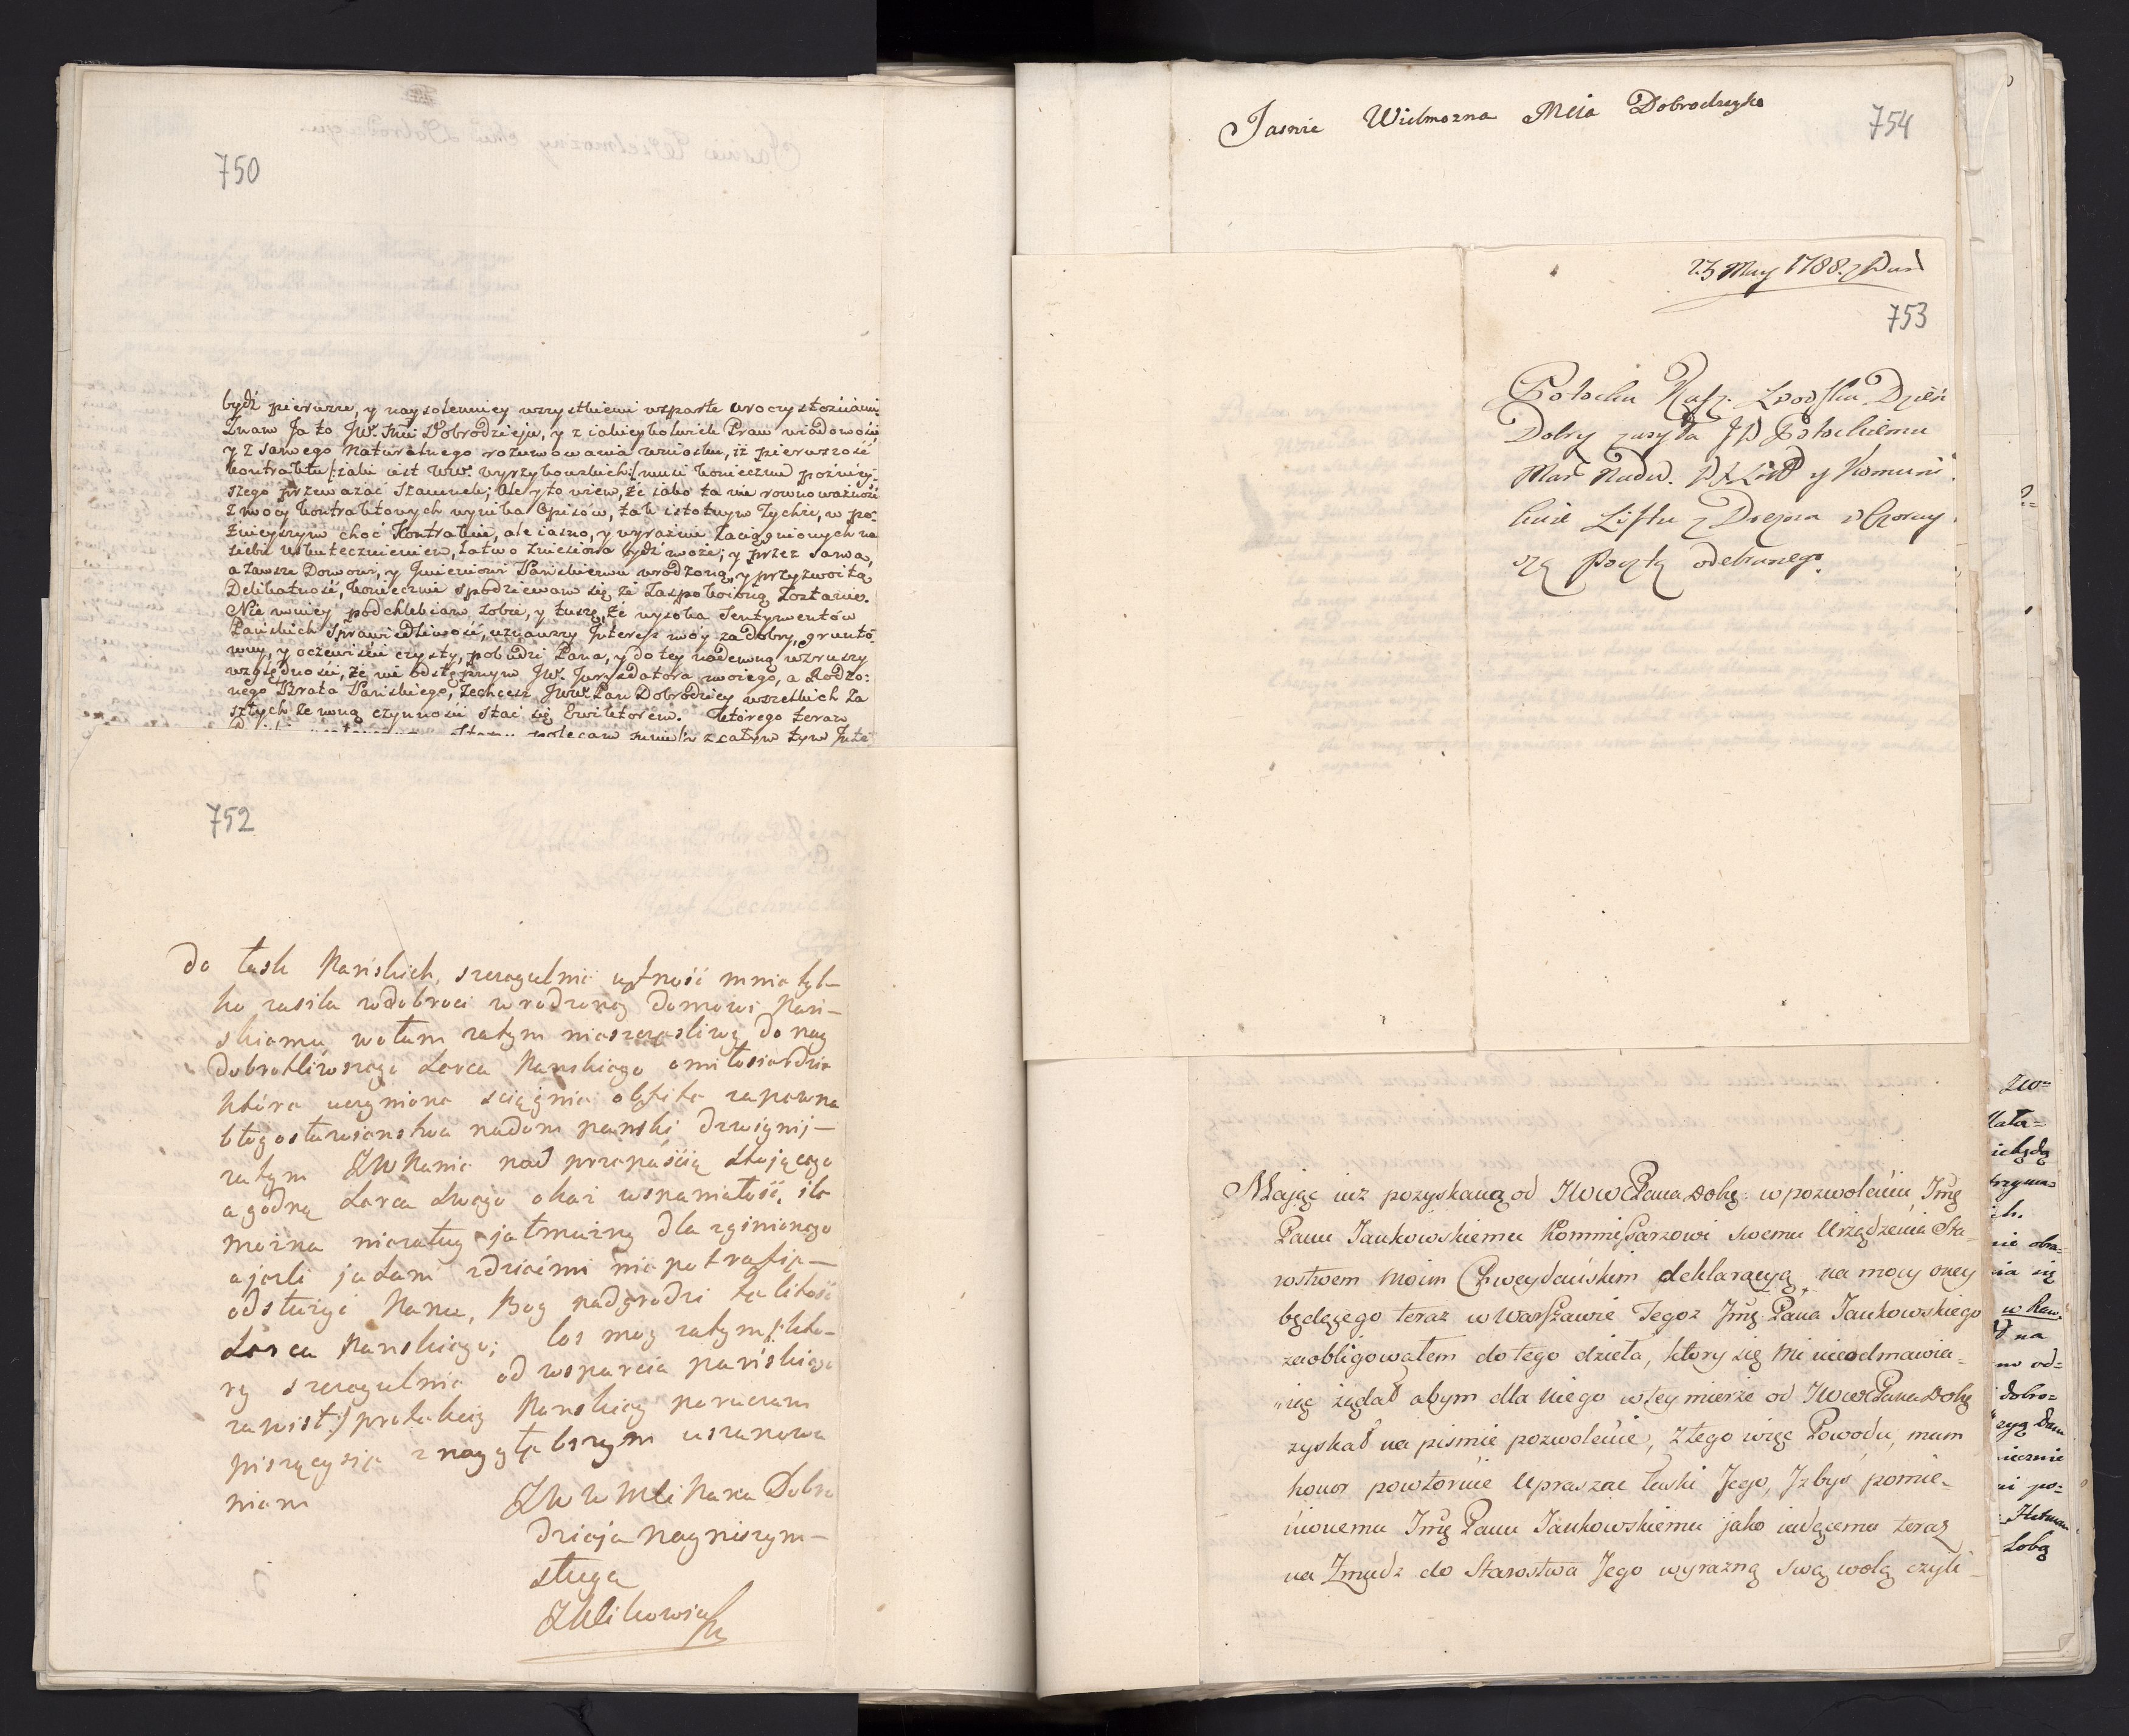 750
bydź pierwsze, y naysolenniey wszystkiemi wsparte uroczystościami.
Znam Ja to JW. Mci Dobrodzieju, y z iakieykolwiek Praw wiadomości
y z samego naturalnego rozumowania wniosku, iż pierwszość
kontraktu /:iaki iest WW. Wyrzykowskich:/ musi koniecznie poźniey-
szego przeważać szacunek; Ale y to wiem, że iako ta nie rownoważności
z mocy kontraktowych wynika Opisów, tak istotnym tychże, w po-
źnieyszym choć Kontrakcie, ale iasno, y wyraźnie zaciągnionych na
siebie uskutecznieniem, łatwo zniesiona bydź może; y przez samą,
a zawsze Domowi, y Imieniowi Pańskiemu wrodzoną, y przyzwoitą
Delikatność, koniecznie spodziewam się, że zaspokoioną zostanie.
Nie mniey podchlebiam sobie, y tuszę, że wysoka Sentymentów
Pańskich Sprawiedliwość, uznawszy Interess móy za dobry, grunto-
wny, y oczewiście czysty, pobudzi Pana, y do tey nademną wzruszy
względności, że nie odstępnym JW. Jurgedatora moiego, a Rodzo:
nego Brata Pańskiego, zechcesz JWW Pan Dobrodziey wszelkich za
szłych ze mną czynności stać się Ewiktorem. Którego teraz
polecam mnie z całym tym Inte
752
do łask Pańskich, szczegulnie ufność mnie tyl-
ko zasila w dobroci wrodzoney domowi Pań-
skiemu wołam zatym nieszczęsliwy do nay
dobrotliwszego Serca Panskiego o miłosierdzie
które uczynione sciągnie obfite zapewne
błogosławienstwa nadom panski dzwigniy-
zatym JW Panie nad przepaścią stojącego
a godną Serca Swego okaż wspaniałość, ile
można nieratuy jałmużną dla zginionego
a jezli ja Sam zdziećmi nie potrafię-
odsłużyć Panu, Bog nadgrodzi tę litość
Serca Panskiego; los moy zatym /:kto-
ry szczegulnie od wsparcia pańskiego
zawisł:/ protekcij Panskiey poruczam
piszącysie z naygłębszym uszanowa
niem
JWW Mci Pana Dobro
dzieja nayniszym-
sługą
754
Jasnie Wielmozna Mcia Dobrodzyko
23 May 1788.
753
Potocka Kasz: Lwowska Dzień
Dobry zasyła JP Potockiemu
Mar Nadw. y Komuni
kuie Listu z Drezna wczoray
szą Pocztą odebranego.
Mając iuz pozyskaną od JWWPana Dobę: w pozwoleniu Jmę
Panu Jankowskiemu Kommissarzowi swemu Urządzenia Sta-
rostwem moim Chweydańskim deklaracyą, na mocy oney
będącego teraz w Warszawie Tegoz Jmę Pana Jankowskiego
zaobligowałem do tego dzieła, ktory się mi nieodmawia-
iąc żądał abym dla niego w tey mierze od JWWPana Dobę
zyskał na pismie pozwolenie, z tego więc Powodu, mam
honor powtornie upraszać łaski Jego, Izbyś pomie-
nionemu Jmę Panu Jankowskiemu jako iadącemu teraz
na Zmudz do Starostwa Jego wyrazną swą wolą czyli